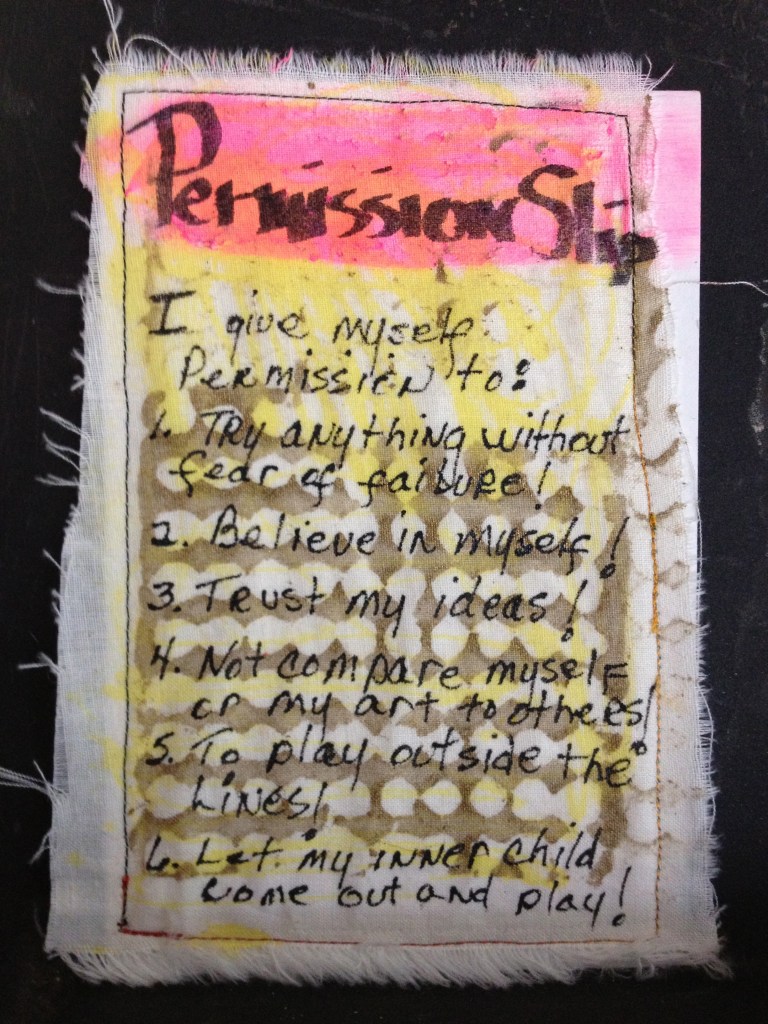 Permission Slip
I give myself
Permission to:
1. Try anything without
fear of failure!
2. Believe in myself!
3. Trust my ideas!
4. Not compare myself
or my art to others!
5. To play outside the
Lines!
6. Let my inner child
come out and play!